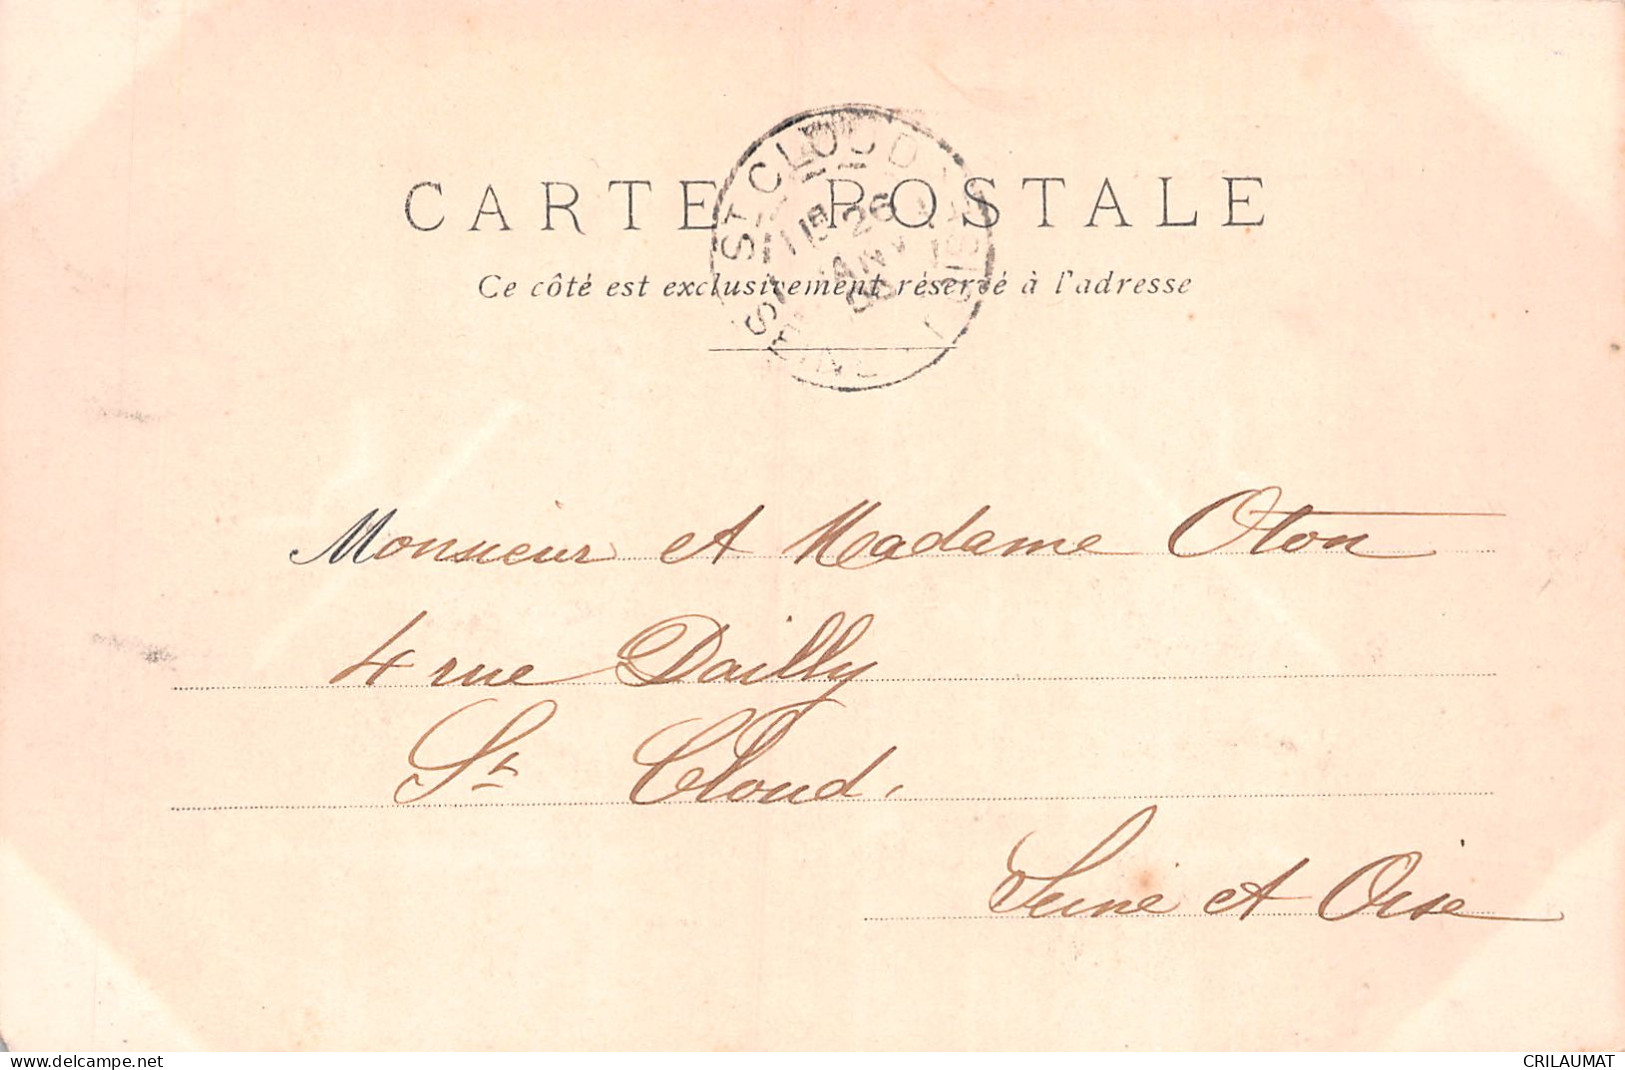 CARTE POSTALE
ST CLOUD
SEINE
26
JANV
Ce côté est exclusivement réservé à l'adresse
Monsieur et Madame Oton
4 rue Dailly
St Cloud.
Seine et Oise
delcampe.net
CRILAUMAT